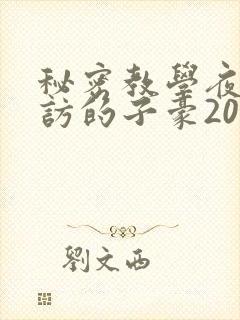 秘密教學夜
訪的子豪20
劉文西